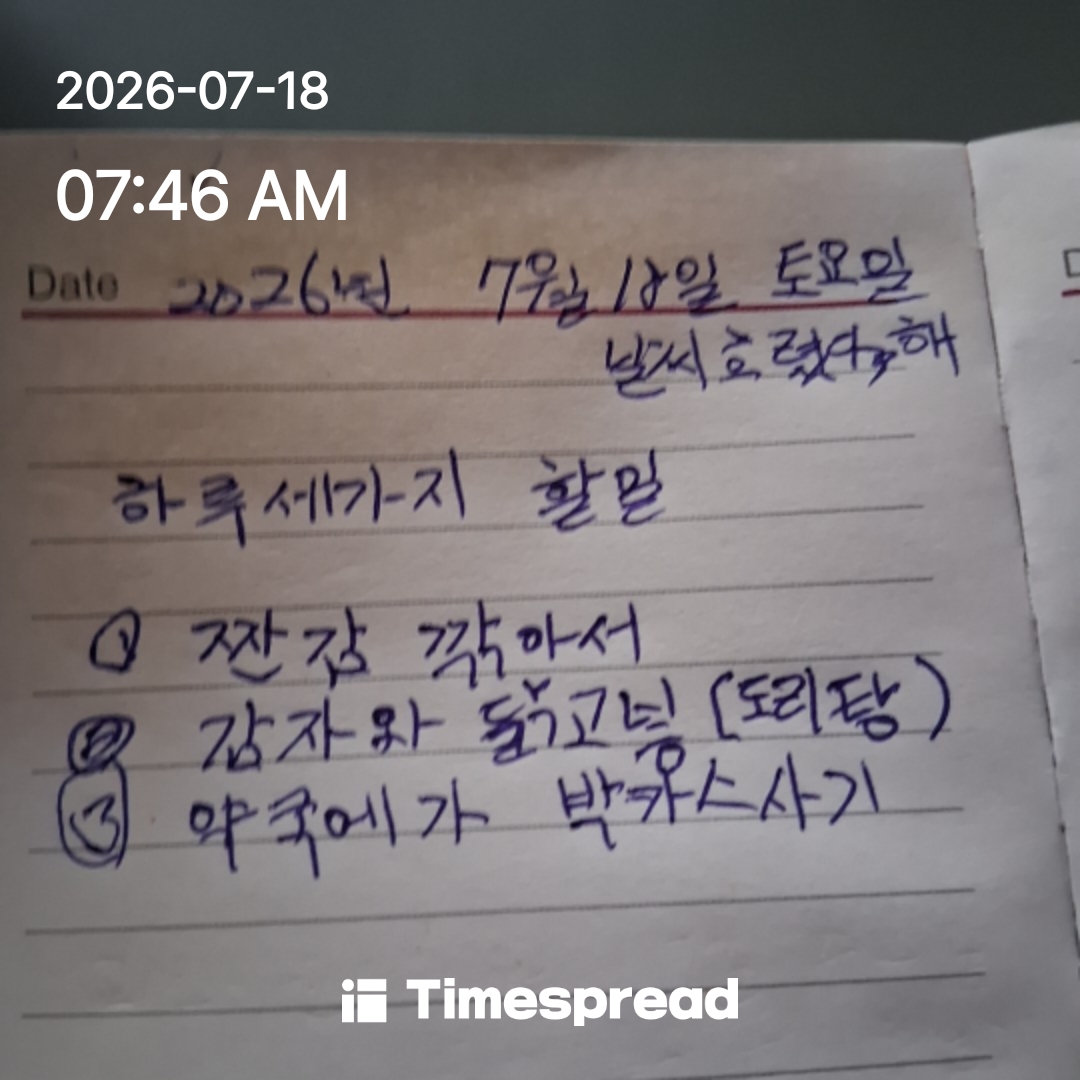 2026-07-18
07:46 AM
Date 2026년 7월 18일 토요일
날씨 흐렸다, 해
하루 세가지 할일
① 짠감 깍아서
② 감자와 닭고넣 (도리탕)
③ 약국에 가 박카스 사기
Timespread